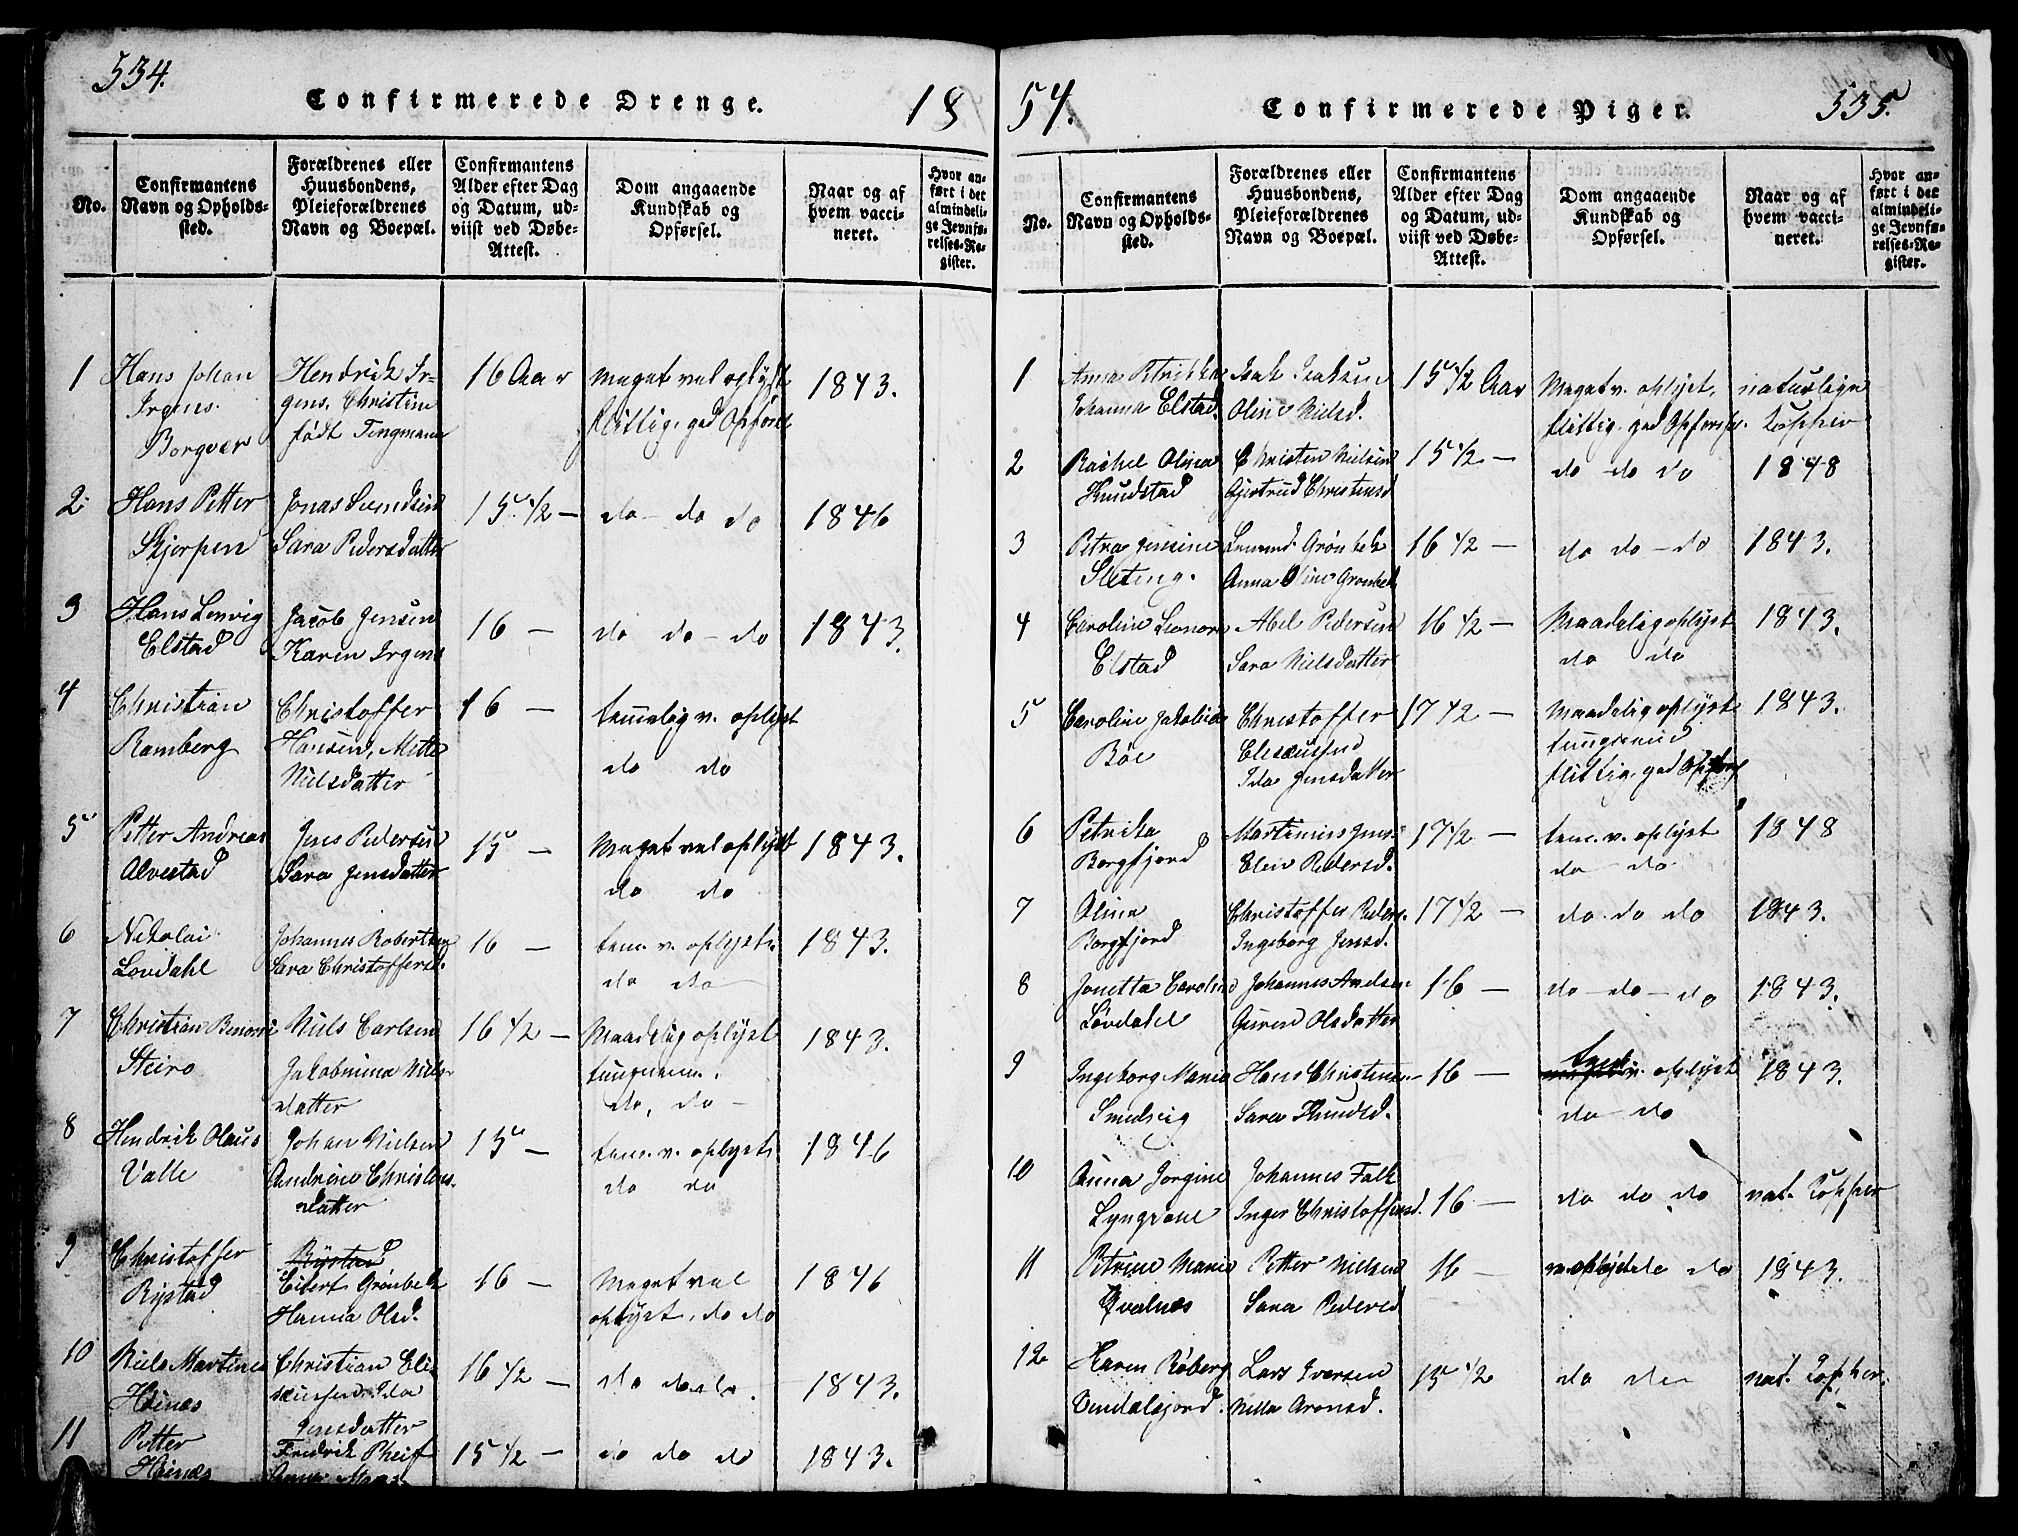 534.
Confirmerede Drenge.
18
No.
Confirmantens
Navn og Opholds-
sted.
Forældrenes eller
Huusbondens,
Pleieforældrenes
Navn og Boepæl.
Confirmantens
Alder efter Dag
og Datum, ud-
viist ved Døbe-
Attest.
Dom angaaende
Kundskab og
Opførsel.
Naar og af
hvem vacci-
neret.
Hvor an-
ført i det
almindeli-
ge Jevnfø-
relses-Re-
gister.
1
Hans Johan
Irgens.
Borgvær
Hendrik Ir-
gens, Christine
født Tingmann
16 Aar
Meget vel oplyst
flittig, god Opførsel
1843.
2
Hans Petter
Skjerpen
Jonas
Sara Pedersdatter
15 1/2 —
do — do do
1846
3
Hans Lenvig
Elstad
Jacob Jensen
Karen Irgens
16 —
do do — do
1843.
4
Christian
Ramberg
Christoffer
Hansen, Mette
Nielsdatter
16 —
temelig v. oplyst
do do
5
Petter Andreas
Alvestad
Jens Pedersen
Sara Jensdatter
15 —
Meget vel oplyst
do do
1843.
6
Nikolai
Lovdahl
Johannes Robertsen
Sara Christoffersd.
16 —
tem. v. oplyst.
do do
1843.
7
Christian Benoni
Steiro
Niels Carlsen
Jakobmina Niels-
datter
16 1/2 —
Maadelig oplyst
tungnem.
do, do —
1843.
8
Hendrik Olaus
Valle
Johan Nielsen
Andrine Christens-
datter
15 —
tem. v. oplyst.
do do
1846
9
Christoffer
Rystad
Rystad
Eilert Grönbek
Hanna Olsd.
16 —
Meget vel
oplyst, do do
1846
10
Niels Martines
Høines
Christian Eli-
sæussen, Ida
Jensdatter
16 1/2 —
do do do.
1843.
11
Petter
Høines
Fredrik Pheif
15 1/2 —
do do do
1843.
54.
Confirmerede Piger.
535.
No.
Confirmantens
Navn og Opholds-
sted.
Forældrenes eller
Huusbondens,
Pleieforældrenes
Navn og Boepæl.
Confirmantens
Alder efter Dag
og Datum, ud-
viist ved Døbe-
Attest.
Dom angaaende
Kundskab og
Opførsel.
Naar og af
hvem vacci-
neret.
Hvor an-
ført i det
almindeli-
ge Jevnfø-
relses-Re-
gister.
1
Anna Petrikka
Johanna Elstad.
Isak Isaksen
Oline Nielsd.
15 1/2 Aar
Meget v. oplyst,
flittig, god Opførsel.
naturlige
Kopper
2
Rachel Olina
Knudstad
Christen Nielsen
Gjertrud Christensd
15 1/2 —
do — do do
1848
3
Petra Jensine
Sleting.
Grönbek
Anna Oline Grönbek
16 1/2 —
do do — do
1843.
4
Caroline Leonora
Elstad
Abel Pedersen
Sara Nielsdatter
16 1/2 —
Maadelig oplyst
do do
1843.
5
Caroline Jakobine
Böe
Christoffer
Elisæussen
Ida Jensdatter
17 1/2 —
Maadelig oplyst
tungnemmed
flittig, god Opførsel
1843.
6
Petrikka
Borgfjord
Martinius Jens.
Elen Pedersd.
17 1/2 —
tem. v. oplyst
do do
1848
7
Olina
Borgfjord
Christoffer Peders.
Ingeborg Jensd.
17 1/2 —
do. do do
1843.
8
Jonetta Caroline
Lövdahl
Johannes Andsen
Guren Olsdatter
16 —
do — do — do
1843.
9
Ingeborg Maria
Smedvig
Hans Christensen
Sara Knudsd.
16 —
tem. v. oplyst
do do
1843.
10
Anna Jorgine
Lyngvær
Johannes Falk
Inger Christoffersd.
16 —
do do do
nat. Kopper
11
Petrine Marie
Qvalnæs
Petter Nielsen
Sara Pedersd
16 —
m. oplyst do do
1843.
12
Karen Röberg
Lars Iversen
Nilla Aronsd.
15 1/2
do do
nat. Kopper.